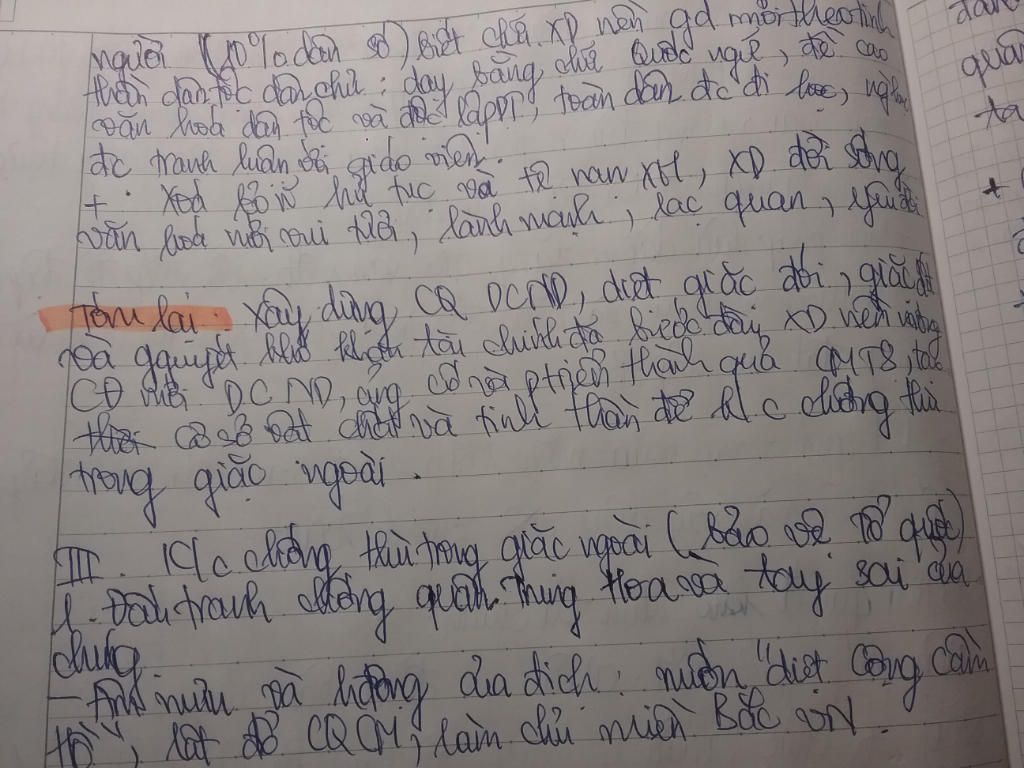 người (10% dân số) biết chữ. XD nền gd mới theo tinh
thần dân tộc dân chủ: dạy bằng chữ Quốc ngữ, đề cao
văn hoá dân tộc và độc lập, toàn dân đc đi học,
đc tranh luận với giáo viên.
+ Xoá bỏ hủ tục và tệ nạn XH, XD đời sống
văn hoá mới vui tươi, lành mạnh, lạc quan, yêu đời
Tóm lại: Xây dựng CQ DCND, diệt giặc đói, giặc dốt
và gquyết khó khăn tài chính đã bước đầu XD nền móng
CĐ mới DCND, củng cố và ptriển thành quả CMT8, tạo
cơ sở vật chất và tinh thần để k/c chống thù
trong giặc ngoài.
III. K/c chống thù trong giặc ngoài (Bảo vệ Tổ quốc)
1. Đấu tranh chống quân Trung Hoa và tay sai của
chúng
- Âm mưu và hđộng của địch: muốn "diệt Cộng cầm
Hồ", lật đổ CQCM, làm chủ miền Bắc VN.
quân
ta
+